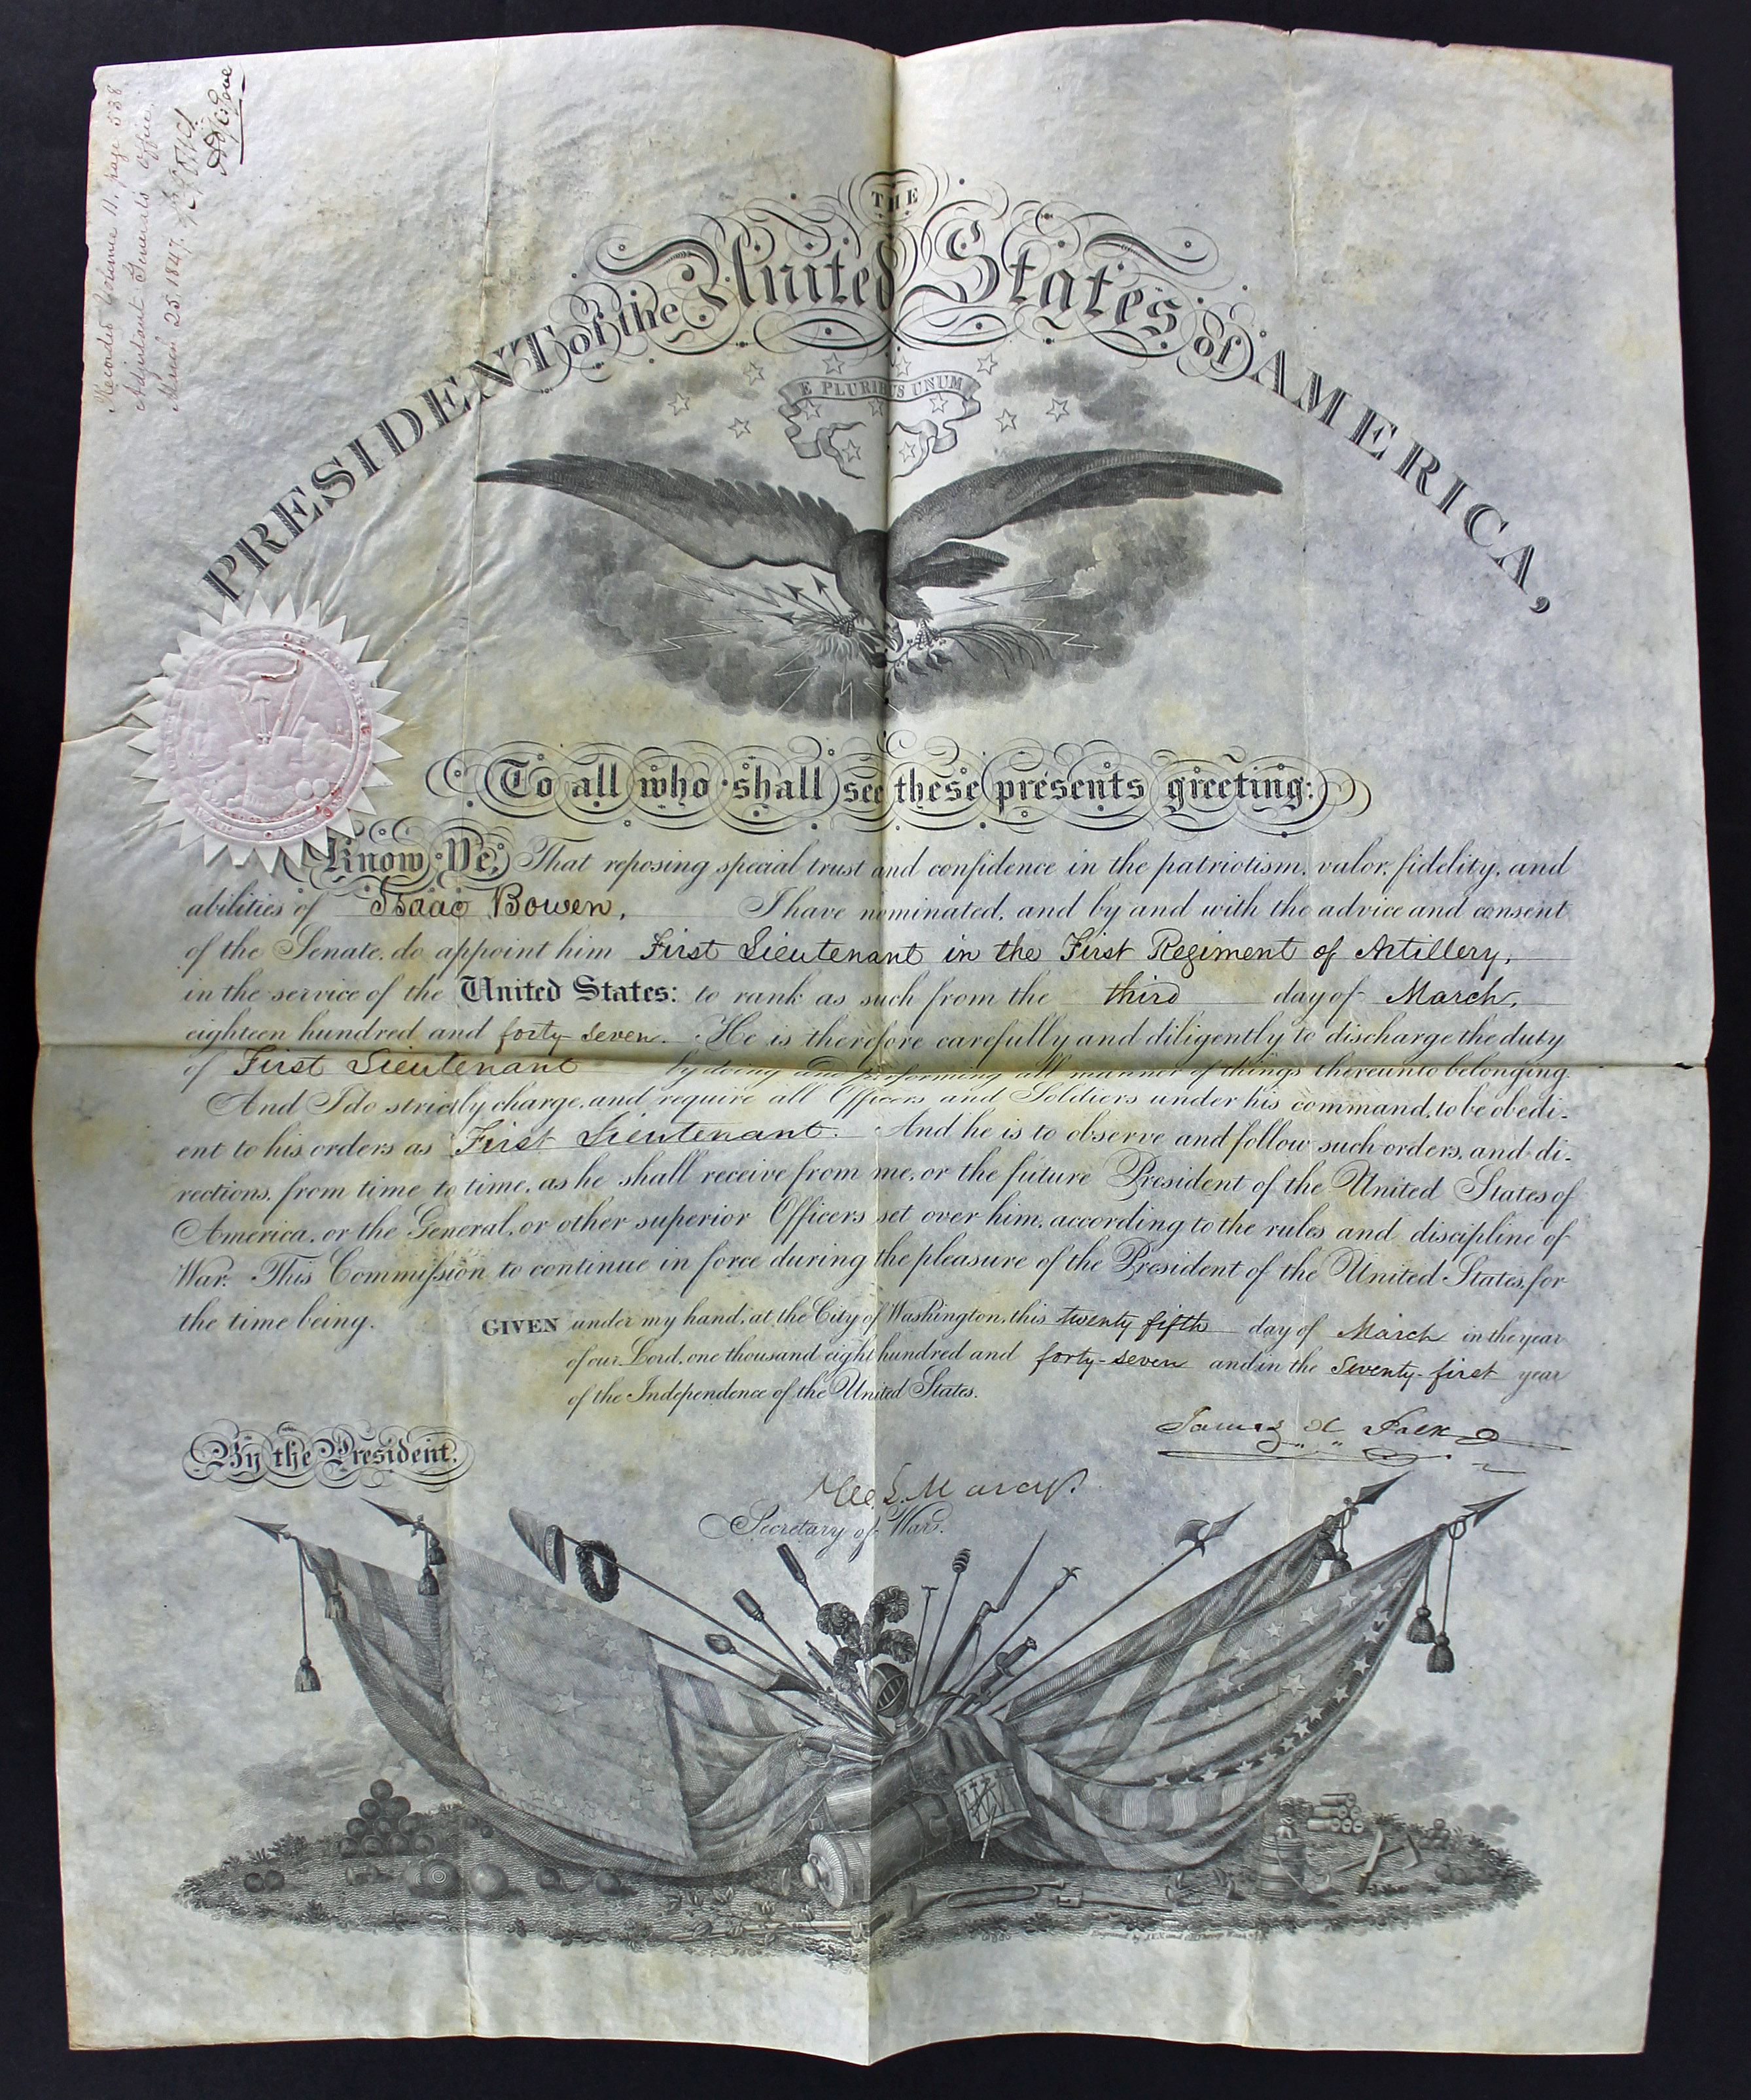 Recorded Volume H. page 338.
Adjutant General's Office,
March 25. 1847.
THE
PRESIDENT of the United States of AMERICA,
E PLURIBUS UNUM
To all who shall see these presents greeting:
Know Ye, That reposing special trust and confidence in the patriotism, valor, fidelity, and
abilities of Isaac Bowen, I have nominated, and by and with the advice and consent
of the Senate, do appoint him First Lieutenant in the First Regiment of Artillery,
in the service of the United States: to rank as such from the third day of March,
eighteen hundred and forty-seven. He is therefore carefully and diligently to discharge the duty
of First Lieutenant by doing and performing all manner of things thereunto belonging.
And I do strictly charge, and require all Officers and Soldiers under his command, to be obedi-
ent to his orders as First Lieutenant. And he is to observe and follow such orders, and di-
rections, from time to time, as he shall receive from me, or the future President of the United States of
America, or the General, or other superior Officers set over him, according to the rules and discipline of
War. This Commission to continue in force during the pleasure of the President of the United States, for
the time being. GIVEN under my hand, at the City of Washington, this twenty fifth day of March in the year
of our Lord, one thousand eight hundred and forty-seven and in the Seventy-first year
of the Independence of the United States.
James K Polk
By the President.
W. L. Marcy.
Secretary of War.
Engraved by